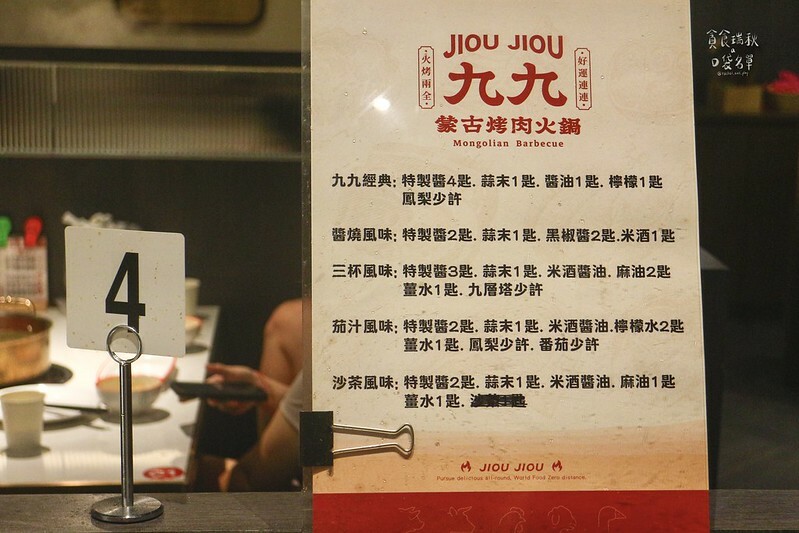 貪食瑞秋
口袋名單
JIOU JIOU
火烤兩全
九九
好運連連
蒙古烤肉火鍋
Mongolian Barbecue
九九經典: 特製醬4匙. 蒜末1匙. 醬油1匙. 檸檬1匙
鳳梨少許
醬燒風味: 特製醬2匙. 蒜末1匙. 黑椒醬2匙.米酒1匙
三杯風味: 特製醬3匙. 蒜末1匙. 米酒醬油. 麻油2匙
薑水1匙. 九層塔少許
茄汁風味: 特製醬2匙. 蒜末1匙. 米酒醬油.檸檬水2匙
薑水1匙. 鳳梨少許. 番茄少許
沙茶風味: 特製醬2匙. 蒜末1匙. 米酒醬油. 麻油1匙
薑水1匙.
4
JIOU JIOU
Pursue delicious all-round, World Food Zero distance.